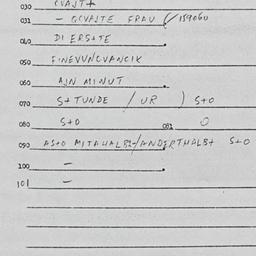 030 CVAJT+
031 - QCVAJTE FRAU (/159060
040 DI ERS+TE
050 FINEVUNCVANCIK
060 AJN MINUT
070 S+TUNDE / UR ) S+O
080 S+O 081 O
090 AS+O MITAHALB+/ANDERTHALB+ S+O
100 -
101 -